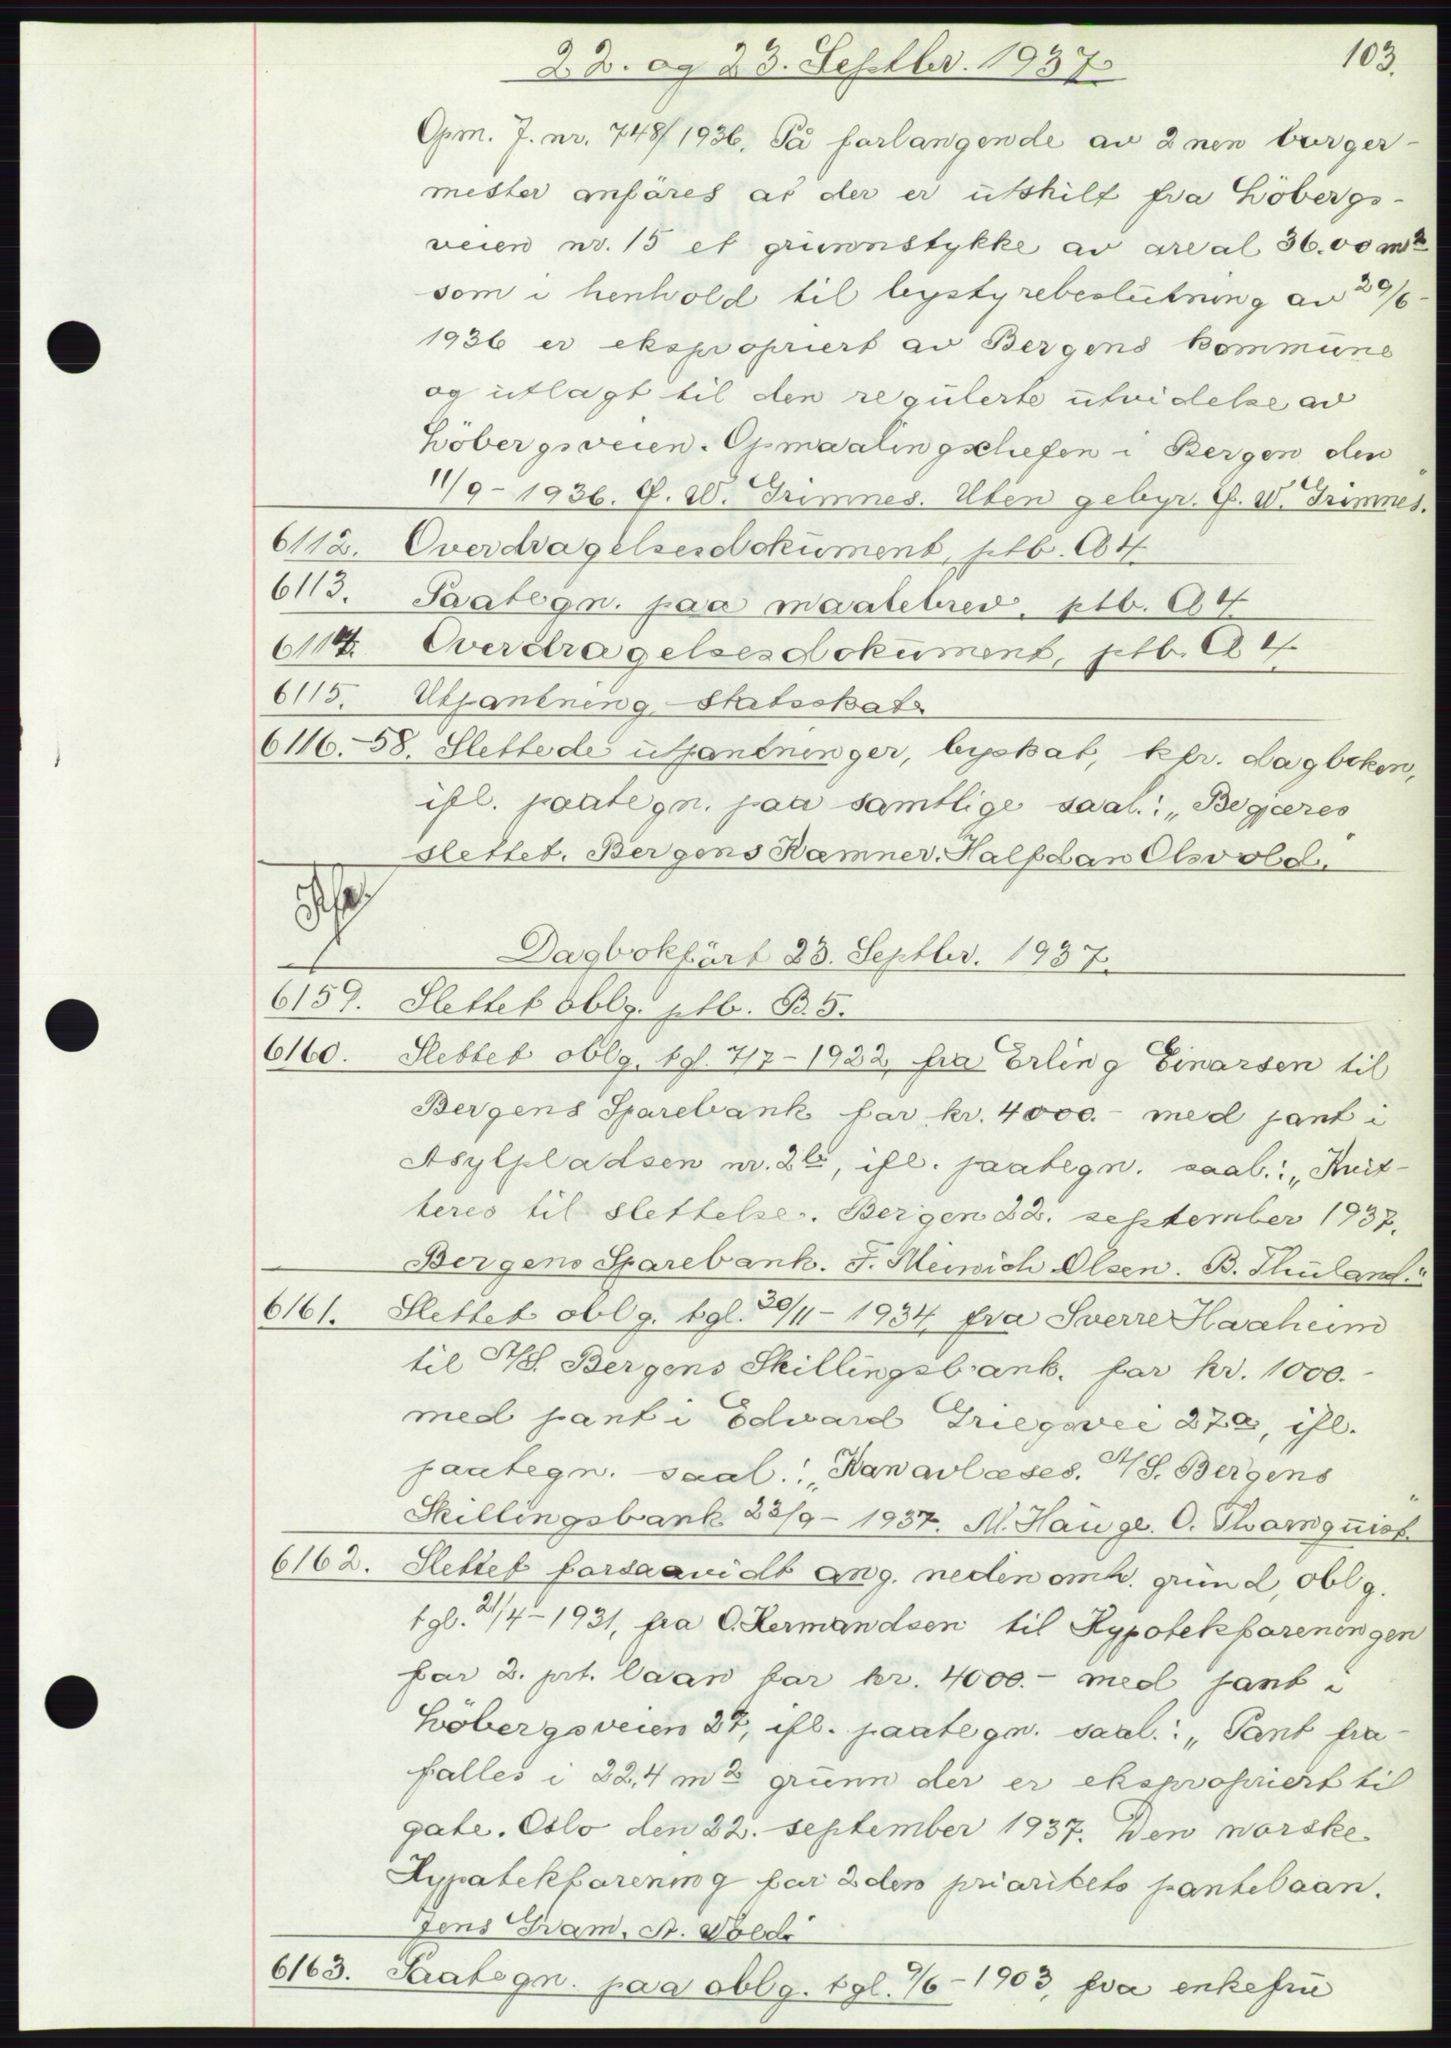 22. og 23. Septbr. 1937.
103.
Opm. J. nr. 748/1936. På forlangende av 2nen borger-
mester anføres at der er utskilt fra Löbergs-
veien nr. 15 et grunnstykke av areal 36.00 m²
som i henhold til bystyrebeslutning av 29/6-
1936 er ekspropriert av Bergens kommune
og utlagt til den regulerte utvidelse av
Löbergsveien. Opmaalingschefen i Bergen den
11/9-1936. G. W. Grimnes. Uten gebyr. G. W. Grimnes."
6112. Overdragelsesdokument, ptb. A 4.
6113. Paategn. paa maalebrev, ptb. A 4
6114. Overdragelsesdokument, ptb. A 4.
6115. Utpantning, statsskat.
6116.-58. Slettede utpantninger, byskat, kfr. dagboken,
ifl. paategn. paa samtlige saal.: „Begjæres
slettet. Bergens Kæmner. Halfdan Olsvold."
Dagbokført 23. Septbr. 1937.
6159. Slettet oblg. ptb. B. 5.
6160. Slettet oblg. tgl. 7/7-1922, fra Erling Einarsen til
Bergens Sparebank for kr. 4000.- med pant i
Asylpladsen nr. 2b, ifl. paategn. saal.: „Kvit-
teres til slettelse. Bergen 22. september 1937.
Bergens Sparebank. F. Meinich Olsen. B. Thuland."
6161. Slettet oblg. tgl. 30/11-1934, fra Sverre Haaheim
til A/S. Bergens Skillingsbank. for kr. 1000.-
med pant i Edvard Griegsvei 27a, ifl.
paategn. saal.: „Kan avlæses. A/S. Bergens
Skillingsbank 23/9-1937. M. Hauge. O. Thornquist."
6162. Slettet forsaavidt ang. nedenomh. grund, oblg.
tgl. 21/4-1931, fra O. Hermandsen til Hypotekforeningen
for 2. prt. laan for kr. 4000.- med pant i
Löbergsveien 27, ifl. paategn. saal.: „Pant fra-
falles i 22,4 m² grunn der er ekspropriert til
gate. Oslo den 22. september 1937. Den norske
Hypotekforening for 2den prioritets pantelaan.
Jens Gram. A. Wold."
6163. Paategn. paa oblg. tgl. 9/6-1903, fra enkefru